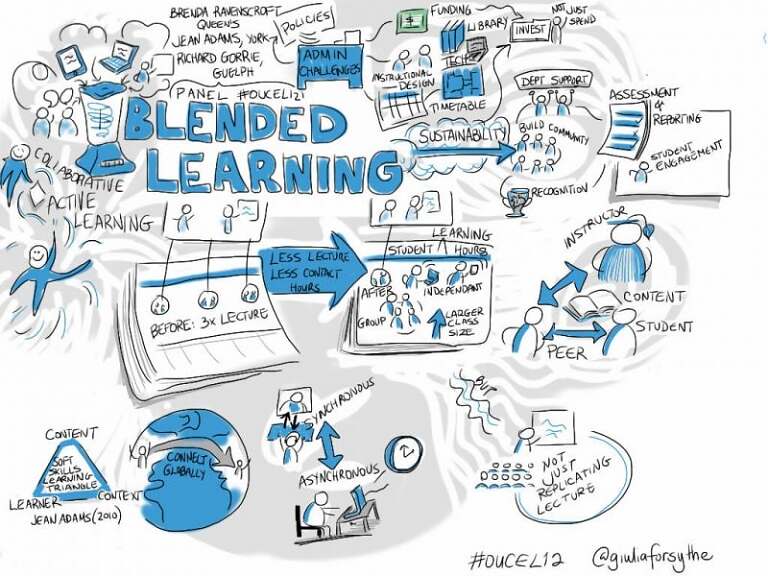 BRENDA RAVENSCROFT
QUEEN'S
JEAN ADAMS, YORK
RICHARD GORRIE,
GUELPH
PANEL #OUCEL12!
POLICIES
ADMIN
CHALLENGES
FUNDING
LIBRARY
TECH
INSTRUCTIONAL
DESIGN
TIMETABLE
INVEST
NOT JUST
SPEND
BLENDED
LEARNING
SUSTAINABILITY
DEPT SUPPORT
BUILD COMMUNITY
RECOGNITION
ASSESSMENT
&
REPORTING
STUDENT
ENGAGEMENT
COLLABORATIVE
ACTIVE
LEARNING
BEFORE: 3X LECTURE
LESS LECTURE
LESS CONTACT
HOURS
LEARNING
STUDENT HOURS
AFTER
INDEPENDANT
GROUP
LARGER
CLASS
SIZE
INSTRUCTOR
CONTENT
STUDENT
PEER
CONTENT
SOFT
SKILLS
LEARNING
TRIANGLE
LEARNER
CONTEXT
JEAN ADAMS (2010)
CONNECT
GLOBALLY
SYNCHRONOUS
ASYNCHRONOUS
BUT
NOT
JUST
REPLICATING
LECTURE
#OUCEL12
@giuliaforsythe